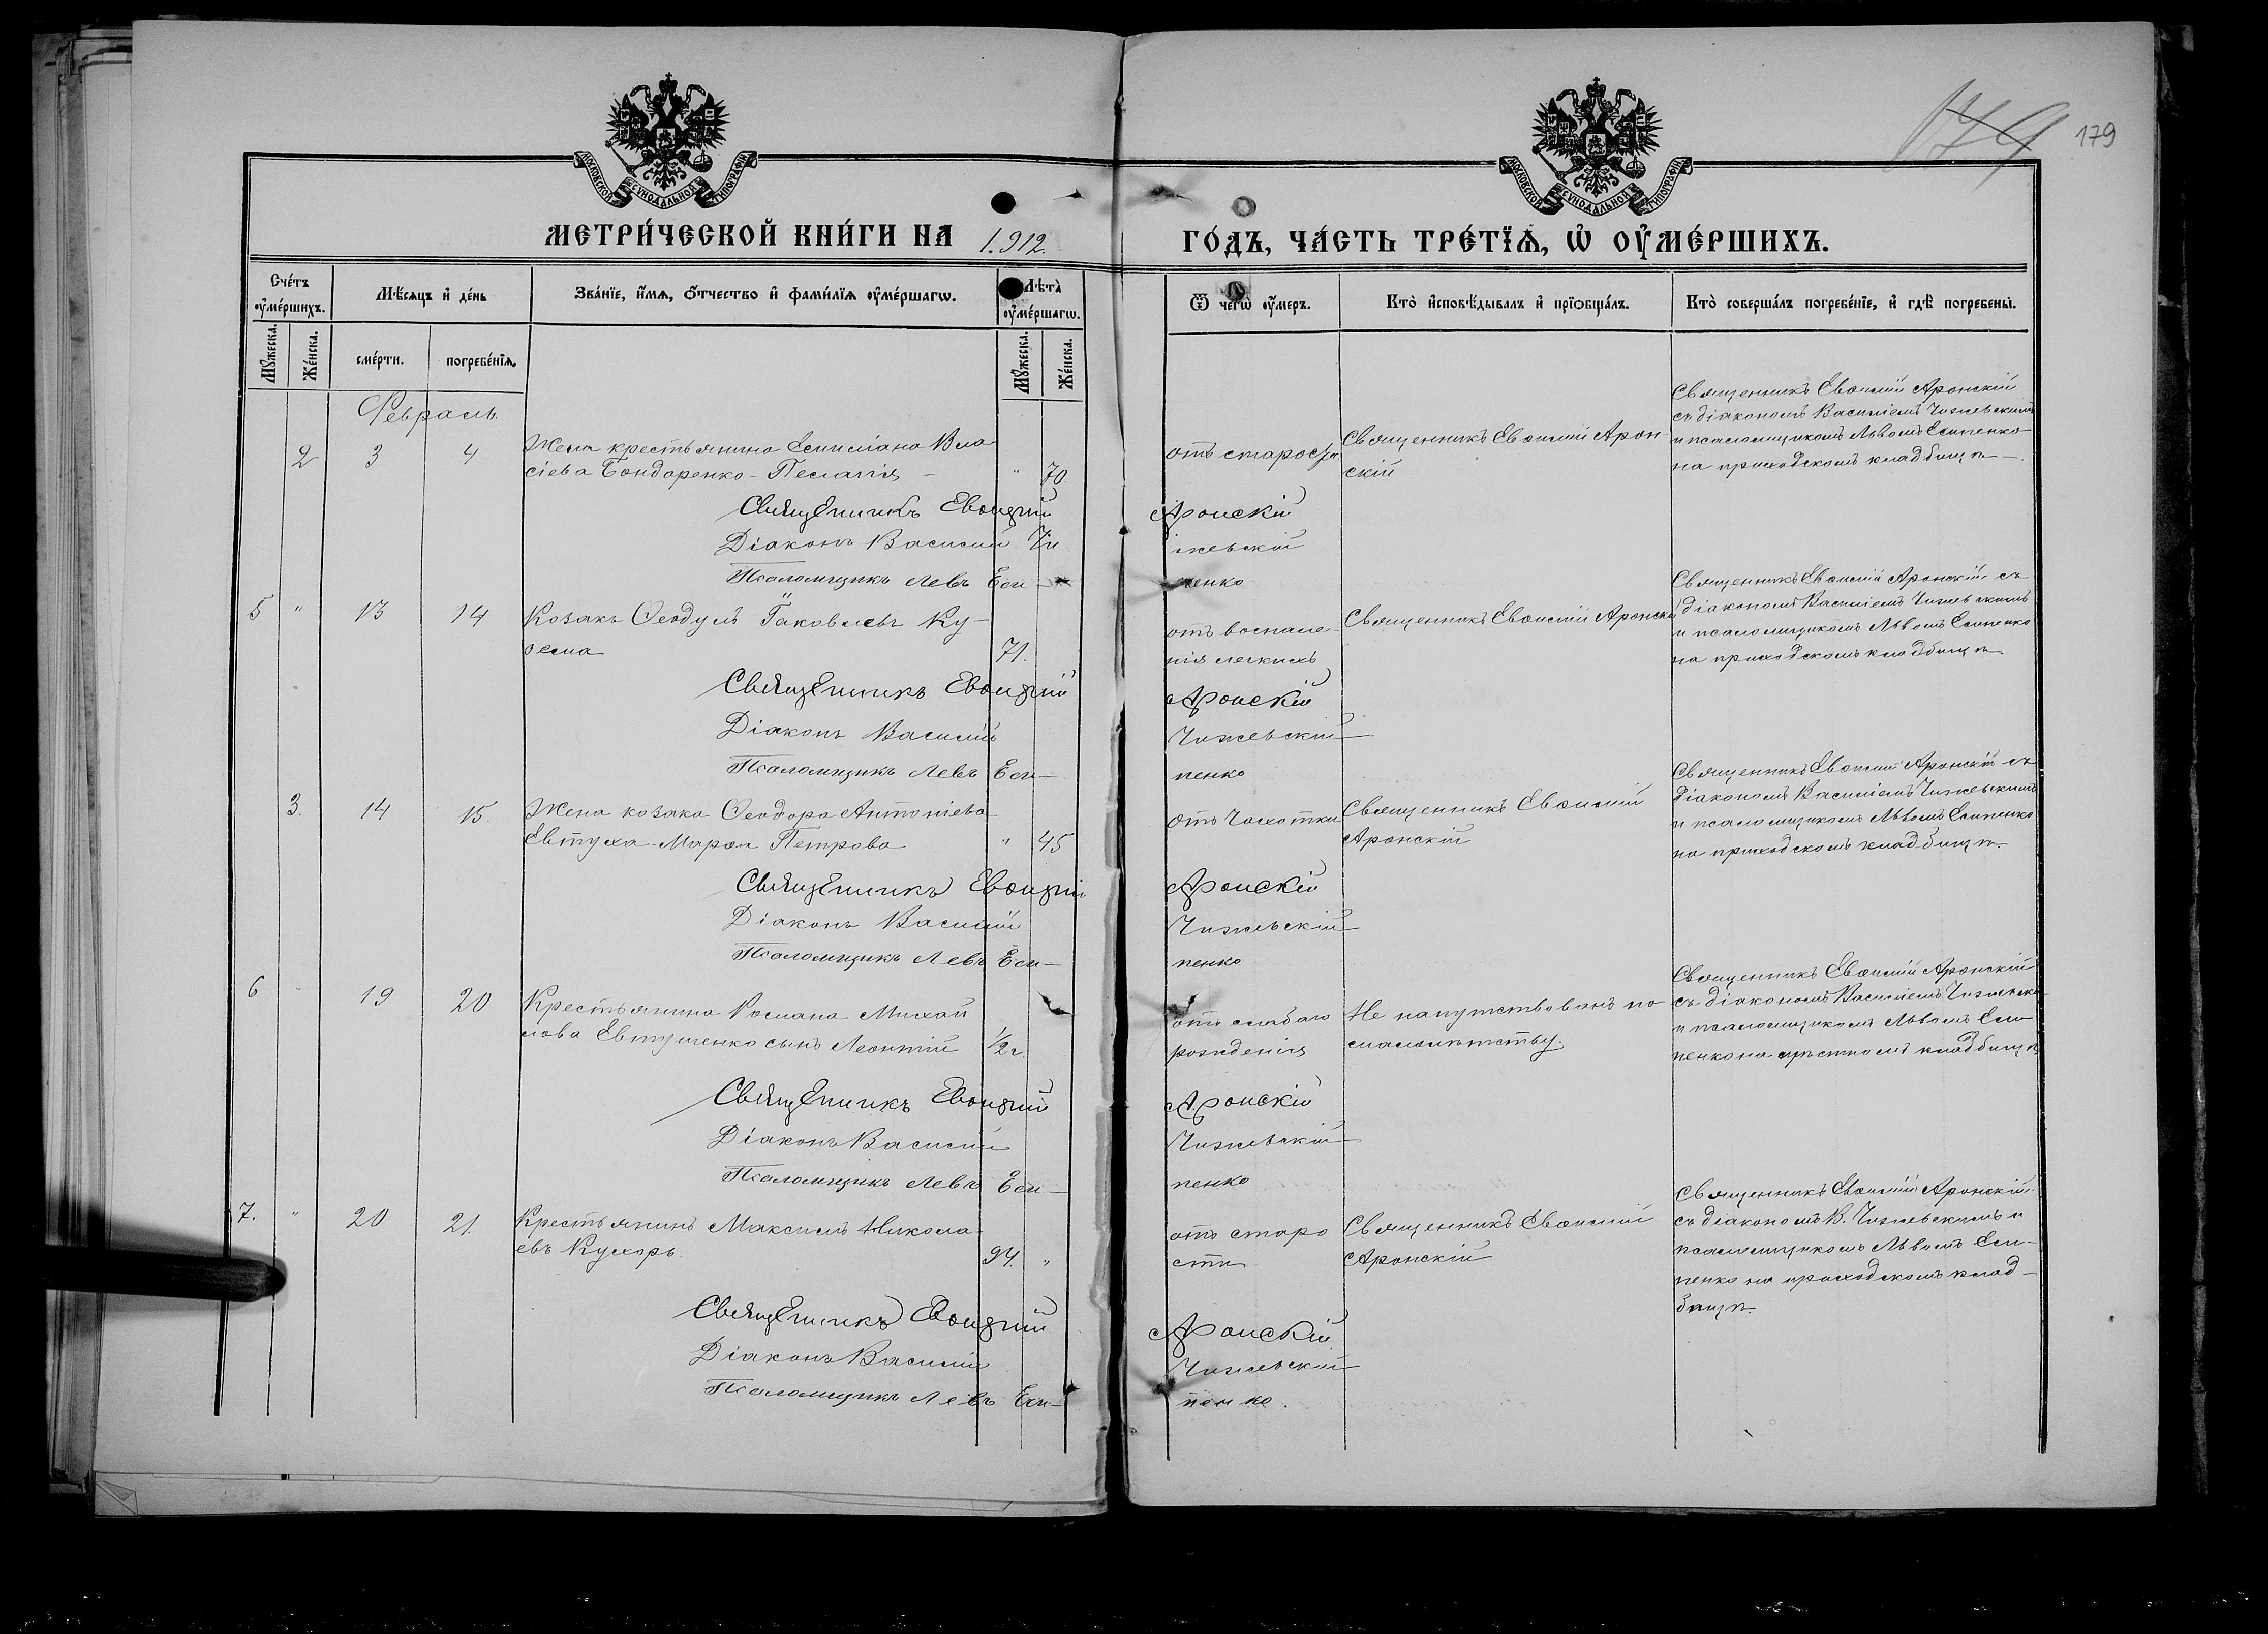 МОСКОВСКОЙ СѴНОДАЛЬНОЙ ТИПОГРАФІИ
МОСКОВСКОЙ СѴНОДАЛЬНОЙ ТИПОГРАФІИ
179
179
МЕТРИ́ЧЕСКОЙ КНИ́ГИ НА 1912.
ГО́ДЪ, ЧА́СТЬ ТРЕ́ТЇѦ, Ѽ ОУ҆МЕ́РШИХЪ.
Сче́тъ оу҆ме́ршихъ.
Мѣ́сяцъ и҆ де́нь
Зва́нїе, и҆́мѧ, ѻ҆́тчество и҆ фами́лїѧ оу҆ме́ршагѡ.
Лѣта̀ оу҆ме́ршагѡ.
Ѿ чегѡ̀ оу҆́меръ.
Кто̀ и҆сповѣ́дывалъ и҆ прїѡбща́лъ.
Кто̀ соверша́лъ погребе́нїе, и҆ гдѣ̀ погребены̀.
Мꙋ́жеска.
Же́нска.
сме́рти.
погребе́нїѧ.
Мꙋ́жеска.
Же́нска.
Февраль
2 3 4
Жена крестьянина Емиліана Вла-
сіева Бондаренко - Пелагія - " 70
отъ старости
Священникъ Евѳимій Арон-
скій
Священникъ Евѳимій Аронскій
съ діакономъ Василіемъ Чижевскимъ
и псаломщикомъ Львомъ Есипенко
на приходскомъ кладбищѣ.
Священникъ Евѳимій Аронскій
Діаконъ Василій Чижевскій
Псаломщикъ Левъ Еси-пенко
5 " 13 14
Козакъ Ѳеодулъ Іаковлевъ Ку-
71.
отъ воспале-
нія легкихъ
Священникъ Евѳимій Аронскій
Священникъ Евѳимій Аронскій съ
діакономъ Василіемъ Чижевскимъ
и псаломщикомъ Львомъ Есипенко
на приходскомъ кладбищѣ
Священникъ Евѳимій Аронскій
Діаконъ Василій Чижевскій
Псаломщикъ Левъ Еси-пенко
3. 14 15.
Жена козака Ѳеодора Антоніева
Евтуха - Марѳа Петрова " 45
отъ чахотки
Священникъ Евѳимій
Аронскій
Священникъ Евѳимій Аронскій съ
діакономъ Василіемъ Чижевскимъ
и псаломщикомъ Львомъ Есипенко
на приходскомъ кладбищѣ.
Священникъ Евѳимій Аронскій
Діаконъ Василій Чижевскій
Псаломщикъ Левъ Еси-пенко
6 " 19 20
Крестьянина Романа Михай
лова Евтушенко сынъ Леонтій 1/2 г.
отъ слабаго
рожденія
Не напутствованъ по
малолѣтству.
Священникъ Евѳимій Аронскій
съ діакономъ Василіемъ Чижевским
и псаломщикомъ Львомъ Еси-
пенко на мѣстномъ кладбищѣ
Священникъ Евѳимій Аронскій
Діаконъ Василій Чижевскій
Псаломщикъ Левъ Еси-пенко
7. " 20 21.
Крестьянинъ Максимъ Никола-
евъ Кухарь 94. "
отъ старо
сти
Священникъ Евѳимій
Аронскій
Священникъ Евѳимій Аронскій
съ діакономъ В. Чижевскимъ и
псаломщикомъ Львомъ Еси-
пенко на приходскомъ клад-
бищѣ.
Священникъ Евѳимій Аронскій
Діаконъ Василій Чижевскій
Псаломщикъ Левъ Еси-пенко.